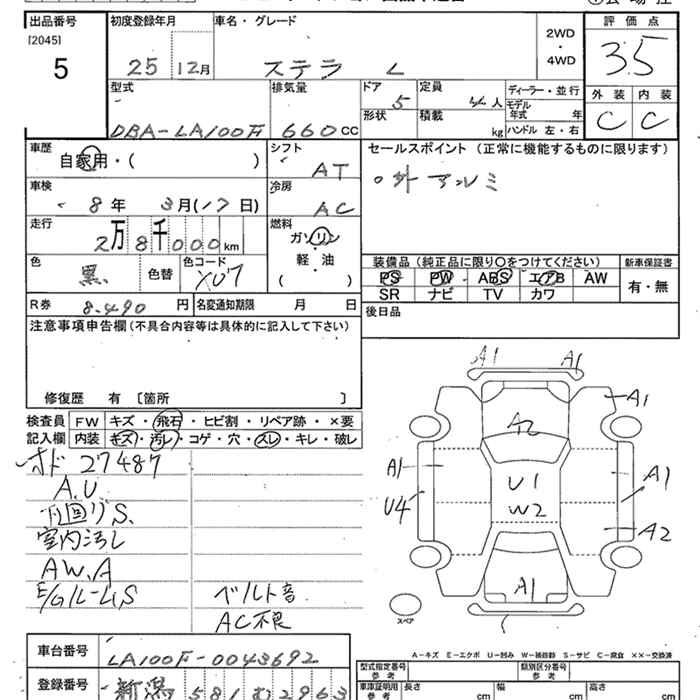 出品番号 初度登録年月 車名・グレード 評価点
[2045]
5 25 12月 ステラ L 2WD・4WD 3.5
外装 内装
C C
型式 排気量 ドア 定員 ディーラー・並行
DBA-LA100F 660cc 5 4人 モデル年式 年
形状 積載 kg ハンドル 左・右
車歴 シフト セールスポイント (正常に機能するものに限ります)
自家用・( ) AT ○外アルミ
車検 冷房
8年 3月(17日) AC
走行 燃料
2万8千000km ガソリン
軽・油
( )
色 色替 色コード 装備品 (純正品に限り○をつけてください) 新車保証書
黒 X07 PS PW ABS エアB AW 有・無
SR ナビ TV カワ
R券 8.490円 名変通知期限 月 日 後日品
注意事項申告欄(不具合内容等は具体的に記入して下さい)
修復歴 有 [箇所 ]
検査員 FW キズ・飛石・ヒビ割・リペア跡・×要
記入欄 内装 キズ・汚レ・コゲ・穴・スレ・キレ・破レ
オド 27487
A.U
下回りS.
室内汚レ
AW.A
E/Gルーム S ベルト音
AC不良
A1 A1
A1
A2
A1 U1 A1
U4 W2
A2
A1
スペア
A-キズ E-エクボ U-凹み W-補修跡 S-サビ C-腐食 ××-交換済
車台番号 LA100F-0043692
型式指定番号 参考 類別区分番号 参考
登録番号 新潟 581 む 2963
車庫証明用 参考 長さ cm 幅 cm 高さ cm